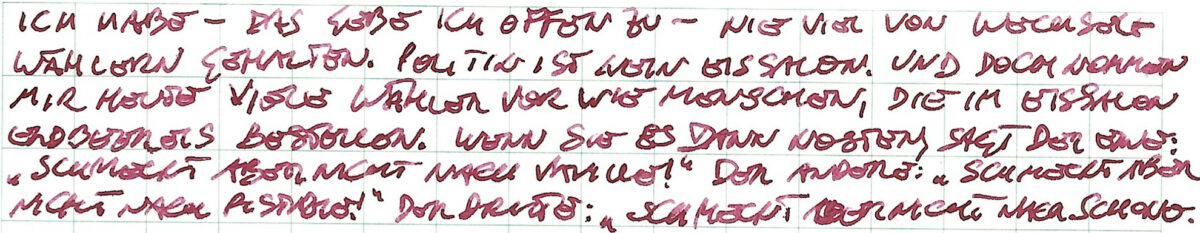 ICH HABE – DAS GEBE ICH OFFEN ZU – NIE VIEL VON WECHSEL
WÄHLERN GEHALTEN. POLITIK IST KEIN EISSALON. UND DOCH KOMMEN
MIR HEUTE VIELE WÄHLER VOR WIE MENSCHEN, DIE IM EISSALON
ERDBEEREIS BESTELLEN. WENN SIE ES DANN KOSTEN, SAGT DER EINE:
„SCHMECKT ABER NICHT NACH VANILLE!“ DER ANDERE: „SCHMECKT ABER
NICHT NACH PISTAZIE!“ DER DRITTE: „SCHMECKT ABER NICHT NACH SCHOKO.